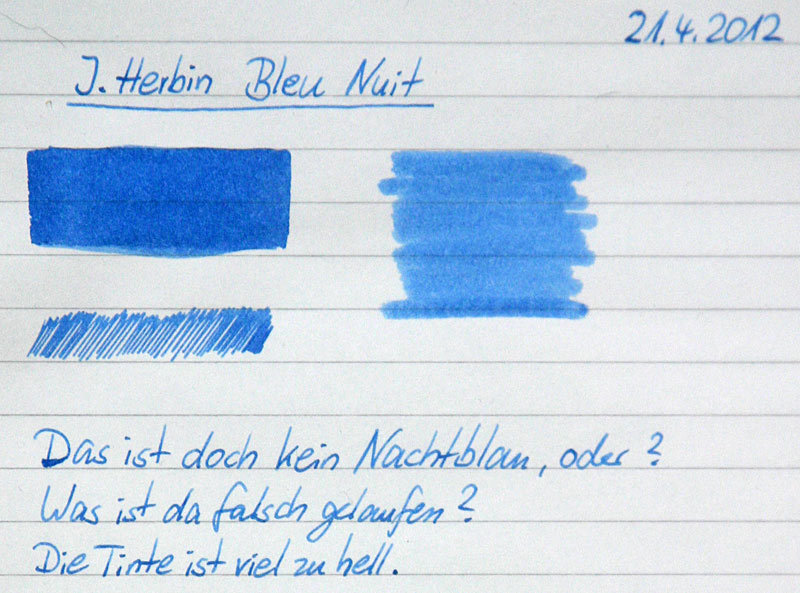 21.4.2012
J. Herbin Bleu Nuit
Das ist doch kein Nachtblau, oder?
Was ist da falsch gelaufen?
Die Tinte ist viel zu hell.